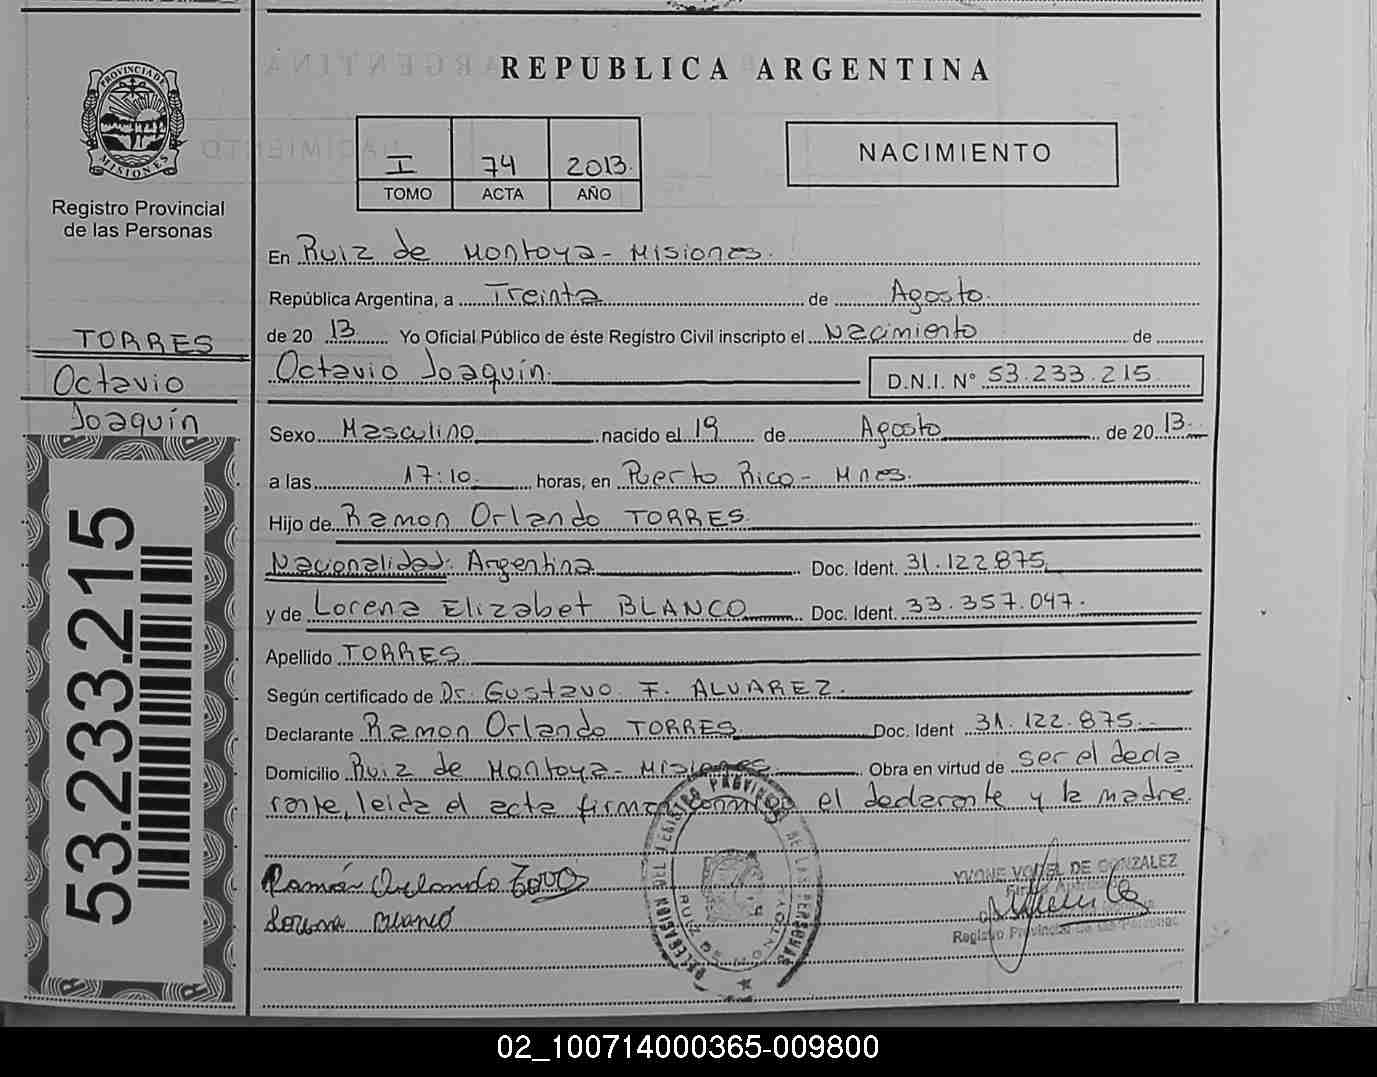 REPUBLICA ARGENTINA
PROVINCIA DE
MISIONES
Registro Provincial
de las Personas
I 74 2013
TOMO ACTA AÑO
NACIMIENTO
En Ruiz de Montoya - Misiones.
República Argentina, a Treinta de Agosto.
de 20 13 Yo Oficial Público de éste Registro Civil inscripto el Nacimiento de
Octavio Joaquín. D.N.I. N° 53.233.215
TORRES
Octavio
Joaquín
Sexo Masculino nacido el 19 de Agosto de 20 13.
a las 17:10 horas, en Puerto Rico - Mnes.
Hijo de Ramon Orlando TORRES
Nacionalidad: Argentina Doc. Ident. 31.122.875
y de Lorena Elizabet BLANCO Doc. Ident. 33.357.047.
Apellido TORRES
Según certificado de Dr. Gustavo F. ALVAREZ.
Declarante Ramon Orlando TORRES Doc. Ident 31.122.875.
Domicilio Ruiz de Montoya - Misiones Obra en virtud de ser el decla
rante, leida el acta firman conmigo el declarante y la madre.
53.233.215
Ramón Orlando Torres
Lorena Blanco
DELEGACION DEL REGISTRO PROVINCIAL DE LAS PERSONAS
RUIZ DE MONTOYA
YVONE VOGEL DE GONZALEZ
Registro Provincial de las Personas
02_100714000365-009800